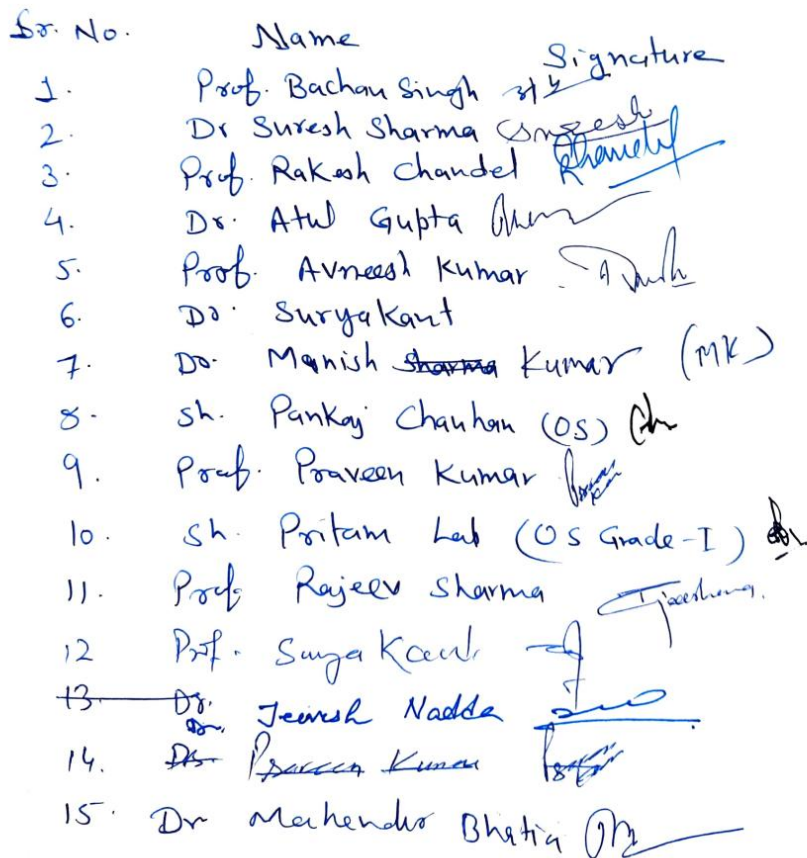 Sr. No. Name Signature
1. Prof. Bachan Singh
2. Dr Suresh Sharma Suresh
3. Prof. Rakesh Chandel
4. Dr. Atul Gupta
5. Prof. Avneesh Kumar
6. Dr. Suryakant
7. Dr. Manish Sharma Kumar (MK)
8. Sh. Pankaj Chauhan (OS)
9. Prof. Praveen Kumar
10. Sh. Pritam Lal (OS Grade-I)
11. Prof. Rajeev Sharma
12 Prof. Surya Kant
13. Dr.
Dr. Jeevesh Nadda
14. Dr. Praveen Kumar
15. Dr Mahender Bhatia